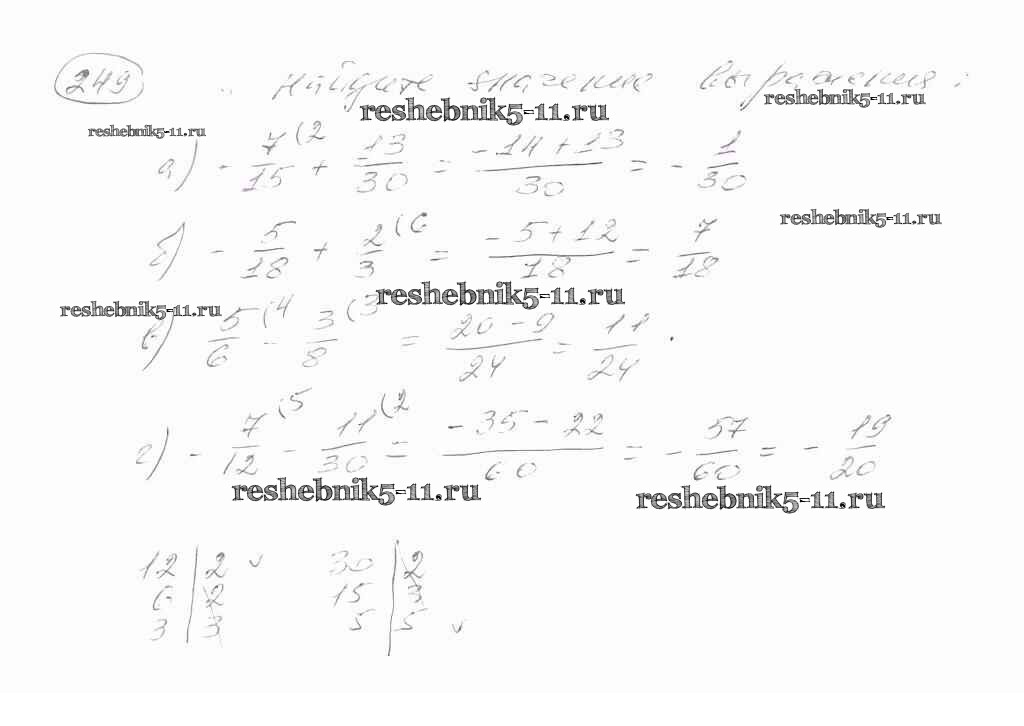 249 Найдите значение выражения:
reshebnik5-11.ru reshebnik5-11.ru
reshebnik5-11.ru
а) - 7/15 (2 + 13/30 = -14+13/30 = - 1/30
reshebnik5-11.ru
б) - 5/18 + 2/3 (6 = -5+12/18 = 7/18
reshebnik5-11.ru
reshebnik5-11.ru
в) 5/6 (4 - 3/8 (3 = 20-9/24 = 11/24.
г) - 7/12 (5 - 11/30 (2 = -35-22/60 = - 57/60 = - 19/20
reshebnik5-11.ru reshebnik5-11.ru
12 | 2 v 30 | 2
6 | 2 15 | 3
3 | 3 5 | 5 v